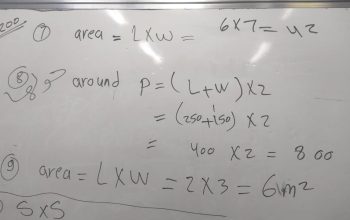 200
⑦ area = L×W = 6×7 = 42
⑧ around P = (L+W)×2
= (250+150)×2
= 400 ×2 = 800
⑨ area = L×W = 2×3 = 6m²
5×5